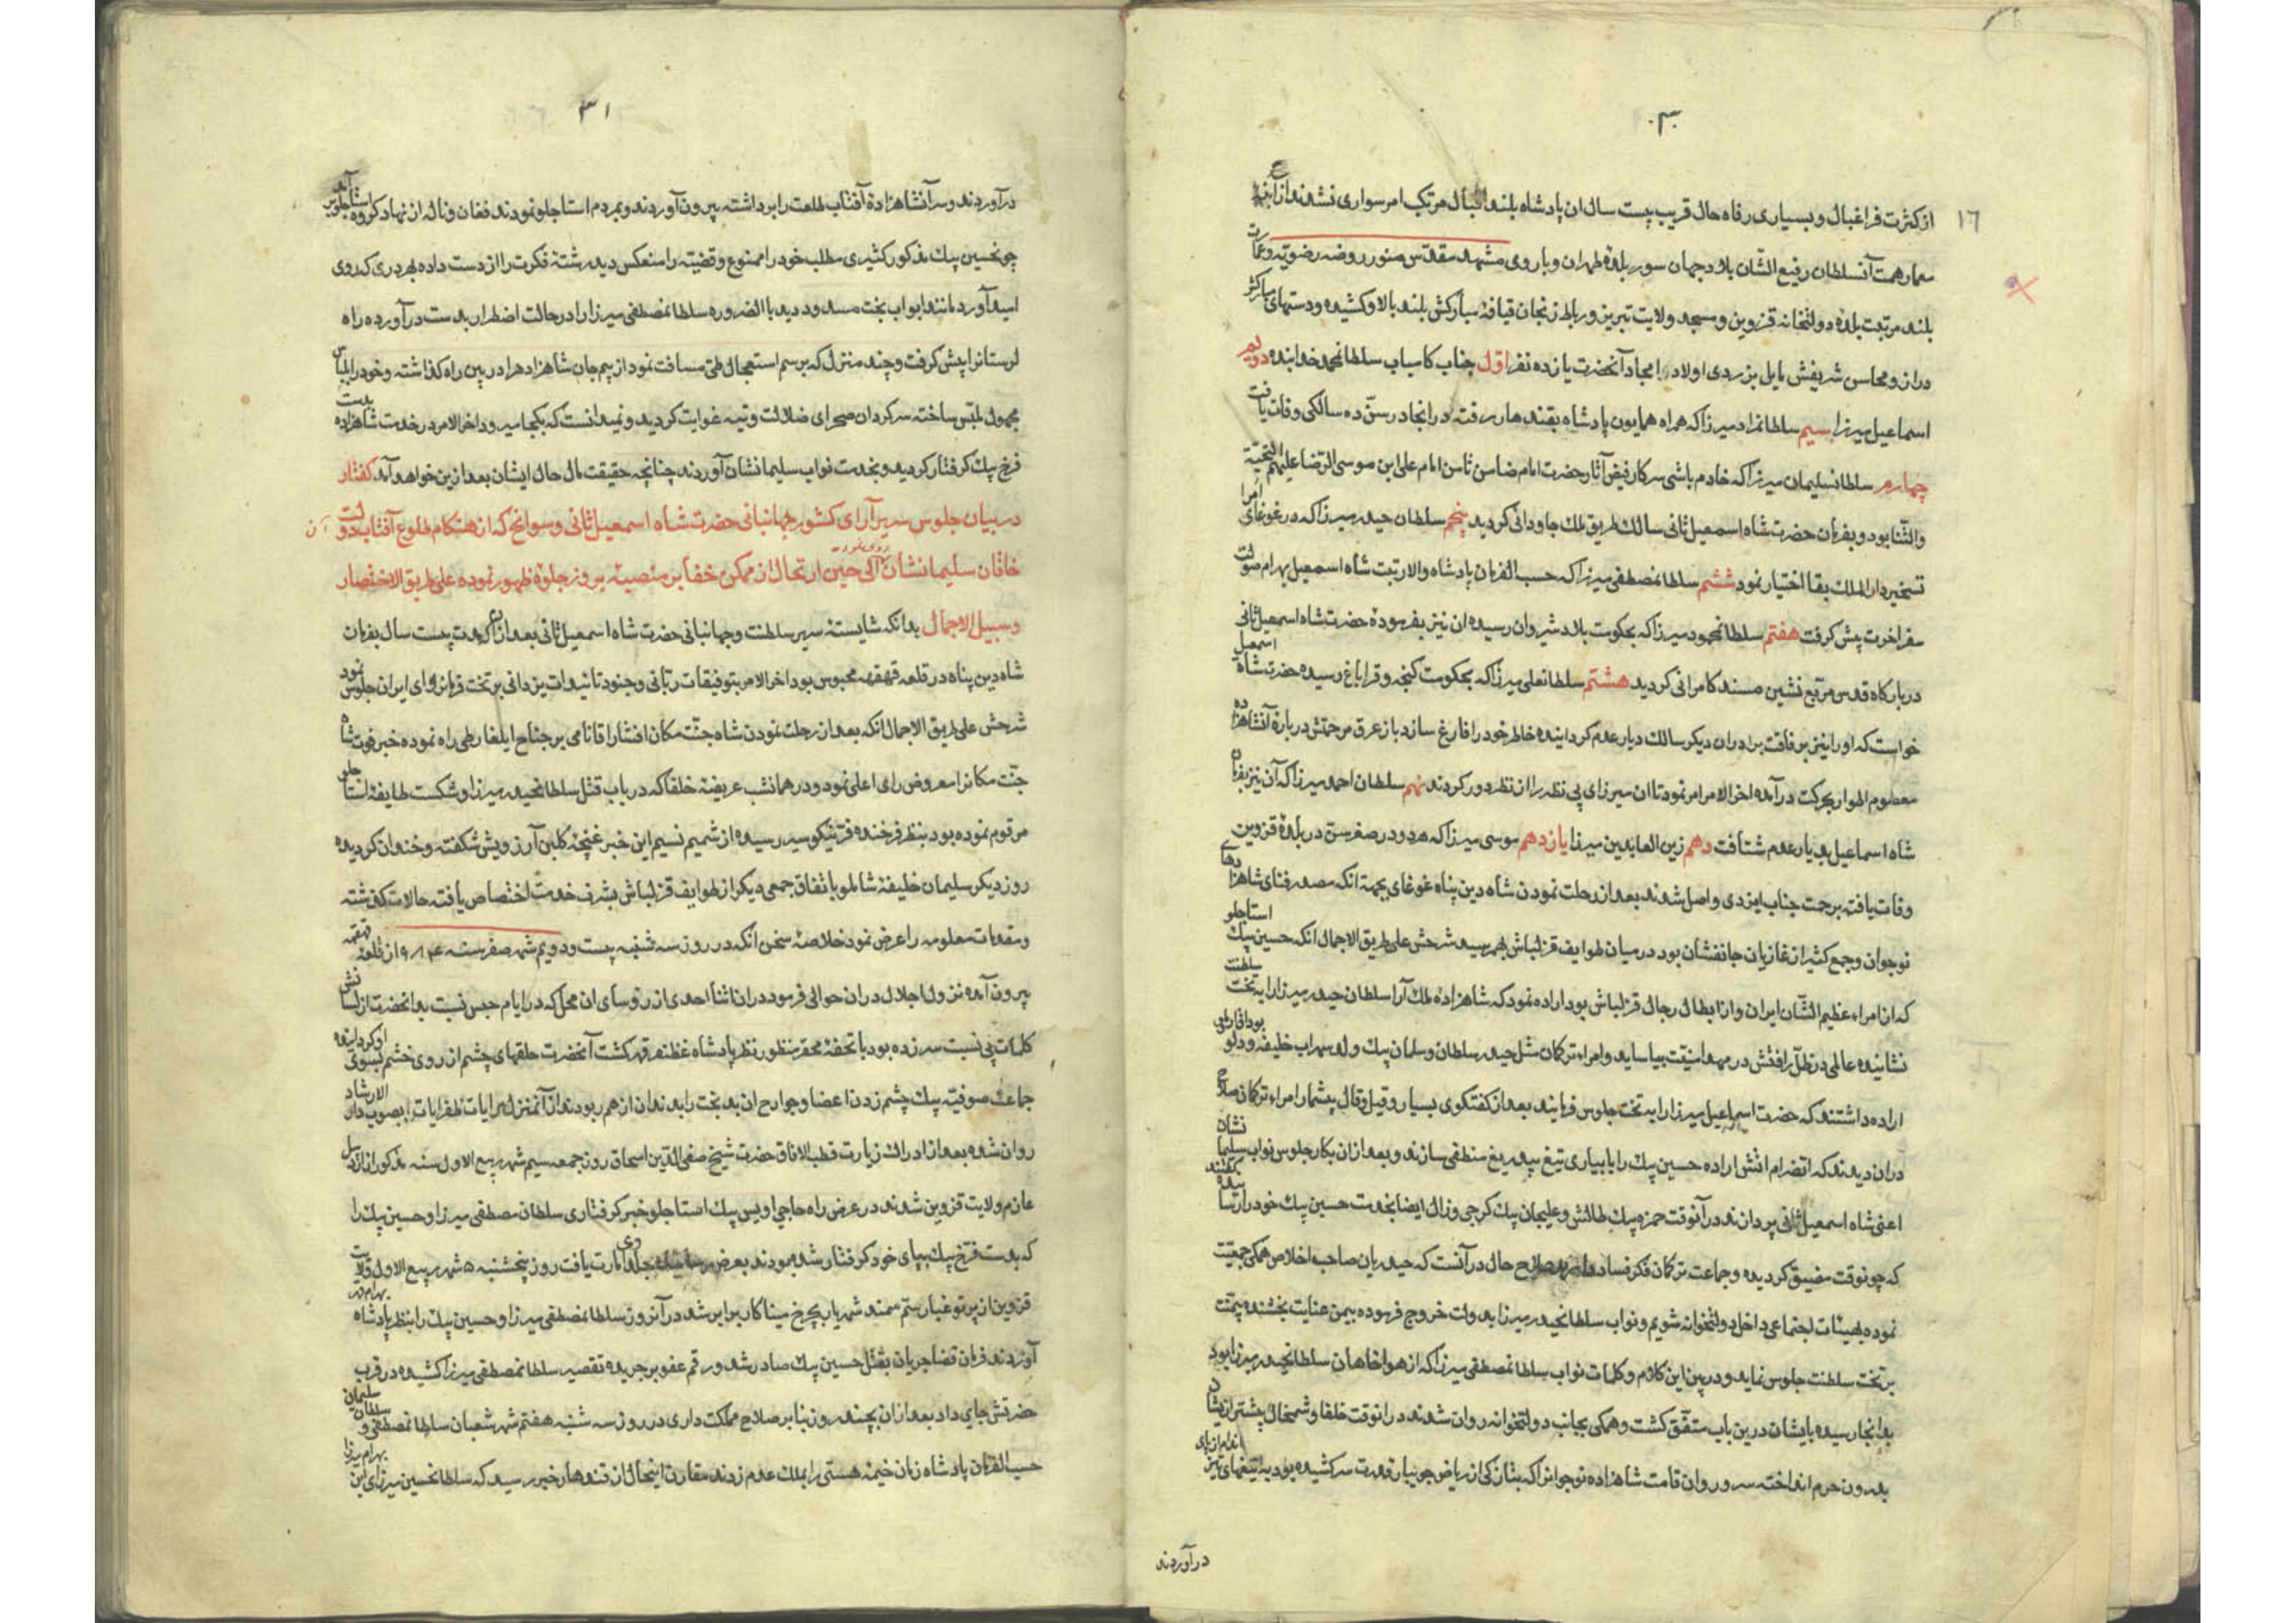 ۳۰
۱۶
از کثرت فراغبال و بسیاری رفاه حال قریب بیست سال ان پادشاه بلند اقبال مرتکب امر سواری نشدند از ابنیه
معمار همت آنسلطان رفیع الشان بلاد جهان سور بلدهٔ طهران و باروی مشهد مقدس منور روضه رضویه و عمارت
بلند مرتبت بلدهٔ دولتخانه قزوین و مسجد ولایت تبریز و رباط زنجان قیافهٔ مبارکش بلند بالا و کشیده و دستهای مبارکش
دراز و محاسن شریفش مایل بزردی اولاد امجاد آنحضرت یازده نفر اوّل جناب کامیاب سلطانمحمد خدابنده دویم
اسماعیل میرزا سیم سلطانمراد میرزا که همراه همایون پادشاه بقندهار رفته در انجا در سنّ ده سالکی وفات یافت
چهارم سلطانسلیمان میرزا که خادم باشی سرکار فیض آثار حضرت امام ضامن ثامن امام علی ابن موسی الرضا علیهم التحیة
والثنا بود و بفرمان حضرت شاه اسمعیل ثانی سالک طریق ملک جاودانی کردید پنجم سلطان حیدر میرزا که در غوغای امرا
تسخیر دار الملک بقا اختیار نمود ششم سلطانمصطفی میرزا که حسب الفرمان پادشاه والا رتبت شاه اسمعیل بهرام صولت
سفر اخرت پیش کرفت هفتم سلطانمحمود میرزا که بحکومت بلاد شروان رسیده ان نیز بفرمودهٔ حضرت شاه اسمعیل ثانی
در بارکاه قدس مربّع نشین مسند کامرانی کردید هشتم سلطانعلی میرزا که بحکومت کنجه و قراباغ رسیده حضرت شاه اسمعیل
خواست که او را نیز برفاقت برادران دیکر سالک دیار عدم کردانیده خاطر خود را فارغ سازد باز عرق مرحمتش در بارهٔ آنشاهزاده
معصوم اطوار بحرکت درآمده اخر الامر امر نمود تا ان میرزای بی نظر را از نظر دور کردند نهم سلطان احمد میرزا که آن نیز بفرمان
شاه اسماعیل بدیار عدم شتافت دهم زین العابدین میرزا یازدهم موسی میرزا که هر دو در صغر سن در بلدهٔ قزوین
وفات یافته برحمت جناب ایزدی واصل شدند بعد از رحلت نمودن شاه دین پناه غوغای بجهة انکه مصدر فنای شاهزادهای
نوجوان و جمع کثیر از غازیان جانفشان بود در میان طوایف قزلباش بهم رسید شرحش علی طریق الاجمال انکه حسین بیک استاجلو
که از امراء عظیم الشّان ایران و از ابطال رجال قزلباش بود اراده نمود که شاهزادهٔ ملک آرا سلطان حیدر میرزا را به تخت سلطنت
نشانیده عالمی در ظلّ رافتش در مهد امنیّت بیاساید و امراء ترکمان مثل حیدر سلطان و سلمان بیک ولد سهراب خلیفه
اراده داشتند که حضرت اسماعیل میرزا را به تخت جلوس فرمایند بعد از کفتکوی بسیار و قیل و قال بیشمار امراء ترکمان صلاح
دران دیدند که انضرام اتش اراده حسین بیک را بابیاری تیغ بیدریغ منطفی سازند و بعد ازان بکار جلوس نواب سلیمان نشان
اعنی شاه اسمعیل ثانی پردازند در آنوقت حمزه بیک طالش و علیجان بیک کرجی و زال ایضا بخدمت حسین بیک خود را رسانیده
که چو نوقت مضیق کردیده و جماعت ترکمان فکر فساد دارند صلاح حال در آنست که حیدریان صاحب اخلاص همکی جمعیّت
نموده بهیئات اجتماعی داخل دولتخوانه شویم و نواب سلطانحیدر میرزا بدولت خروج فرموده بیمن عنایت بخشنده بیمنّت
بر تخت سلطنت جلوس نماید و در بین این کلام و کلمات نواب سلطانمصطفی میرزا که از هواخاهان سلطانحیدر میرزا بود
بدانجا رسیده بایشان درین باب متفّق کشت و همکی بجانب دولتخوانه روان شدند در انوقت خلفا و شمخال پیشتر ازیشان
بدرون حرم انداخته سرو روان قامت شاهزاده نوجوانرا که بتازکی از ریاض جویبار قدرت سرکشیده بود به تیغهای تیز
درآوردند
۳۱
درآوردند و سر آنشاهزادهٔ آفتاب طلعت را برداشته بیرون آوردند و بمردم استاجلو نمودند فغان و ناله از نهاد کروه استاجلو برآمد
چونحسین بیک مذکور کثیری مطلب خود را ممنوع و قضیّه را منعکس دید رشتهٔ فکرت را از دست داده بهر دری که روی
امید آورد مانند ابواب بخت مسدود دید باالضروره سلطانمصطفی میرزا را در حالت اضطرار بدست درآورده راه
لرستانرا پیش کرفت و چند منزل که برسم استعجال طی مسافت نمود از بیم جان شاهزاده را در بین راه کذاشته و خود را بلباس
مجهول ملبّس ساخته سرکردان صحرای ضلالت و تیه غوایت کردید و نمیدانست که بکجا میرود اخر الامر در خدمت شاهزاده بدست
فرخ بیک کرفتار کردید و بخدمت نواب سلیمانشان آوردند چنانچه حقیقت مآل حال ایشان بعد ازین خواهد آمد کفتار
در بیان جلوس سریر آرای کشور جهانبانی حضرت شاه اسمعیل ثانی و سوانح که از هنکام طلوع آفتاب دولت آن
خاقان سلیمانشان الی حین ارتحال از ممکن خفا بر منصّه بروز جلوهٔ ظهور نموده علی طریق الاختصار
و سبیل الاجمال بدانکه شایستهٔ سریر سلطنت و جهانبانی حضرت شاه اسمعیل ثانی بعد از انکه مدت بیست سال بفرمان
شاه دین پناه در قلعه قهقهه محبوس بود اخر الامر بتوفیقات ربّانی و جنود تائیدات یزدانی بر تخت فرمانروای ایران جلوس نمود
شرحش علی طریق الاجمال انکه بعد از رحلت نمودن شاه جنّت مکان افتشار اقا نامی بر جناح ایلغار طی راه نموده خبر فوت شاه
جنّت مکانرا معروض رای اعلی نمود و در همانشب عریضهٔ خلفا که در باب قتل سلطانحیدر میرزا و شکست طایفهٔ استاجلو
مرقوم نموده بود بنظر فرخنده فر نیکو سیر رسیده از شمیم نسیم این خبر غنچهٔ کلبن آرزویش شکفته و خندان کردیده
روز دیکر سلیمان خلیفهٔ شاملو باتفاق جمعی دیکر از طوایف قزلباش بشرف خدمت اختصاص یافته حالات کذشته
و مقدمات معلومه را عرض نمود خلاصهٔ سخن انکه در روز سه شنبه بیست و دویم شهر صفر سنه ۹۸۴ از قلعهٔ قهقهه
بیرون آمده نزول اجلال دران حوالی فرمود دران اثنا احدی از رؤسای ان محل که در ایام حبس نسبت بدانحضرت از لسانش
کلمات بی نسبت سرزده بود با تحفهٔ محقر منظور نظر پادشاه غظنفر قهر کشت آنحضرت حلقهای چشم از روی خشم بسوی او کردانیده
جماعت صوفیّه بیک چشم زدن اعضا و جوارح ان بدبخت را بدندان از هم ربودند از آنمنزل رایات ظفرایات بصوب دار الارشاد
روان شده بعد از ادراک زیارت قطب الافاق حضرت شیخ صفی الدّین اسحاق روز جمعه سیم شهر ربیع الاول سنه مذکور از اردبیل
عازم ولایت قزوین شدند در عرض راه حاجی اویس بیک استاجلو خبر کرفتاری سلطان مصطفی میرزا و حسین بیک را
که بدست فرّخ بیک بپای خود کرفتار شده بودند بعرض یافت روز پنجشنبه ۵ شهر ربیع الاول ولایت
قزوین از پرتو غبار ستم سمند شهریار بچرخ مینا کار برابر شد در آنروز سلطانمصطفی میرزا و حسین بیک را بنظر پادشاه
آوردند فرمان قضا جریان بقتل حسین بیک صادر شد و رقم عفو بر جریده تقصیر سلطانمصطفی میرزا کشیده در قرب
حضرتش جای داد بعد ازان بچند روز بنابر صلاح مملکت داری در روز سه شنبه هفتم شهر شعبان سلطانمصطفی و سلطان سلیمان
حسب الفرمان پادشاه زمان خیمهٔ هستی را بملک عدم زدند مقارن اینحال از قندهار خبر رسید که سلطانحسین میرزای ابن بهرام میرزا